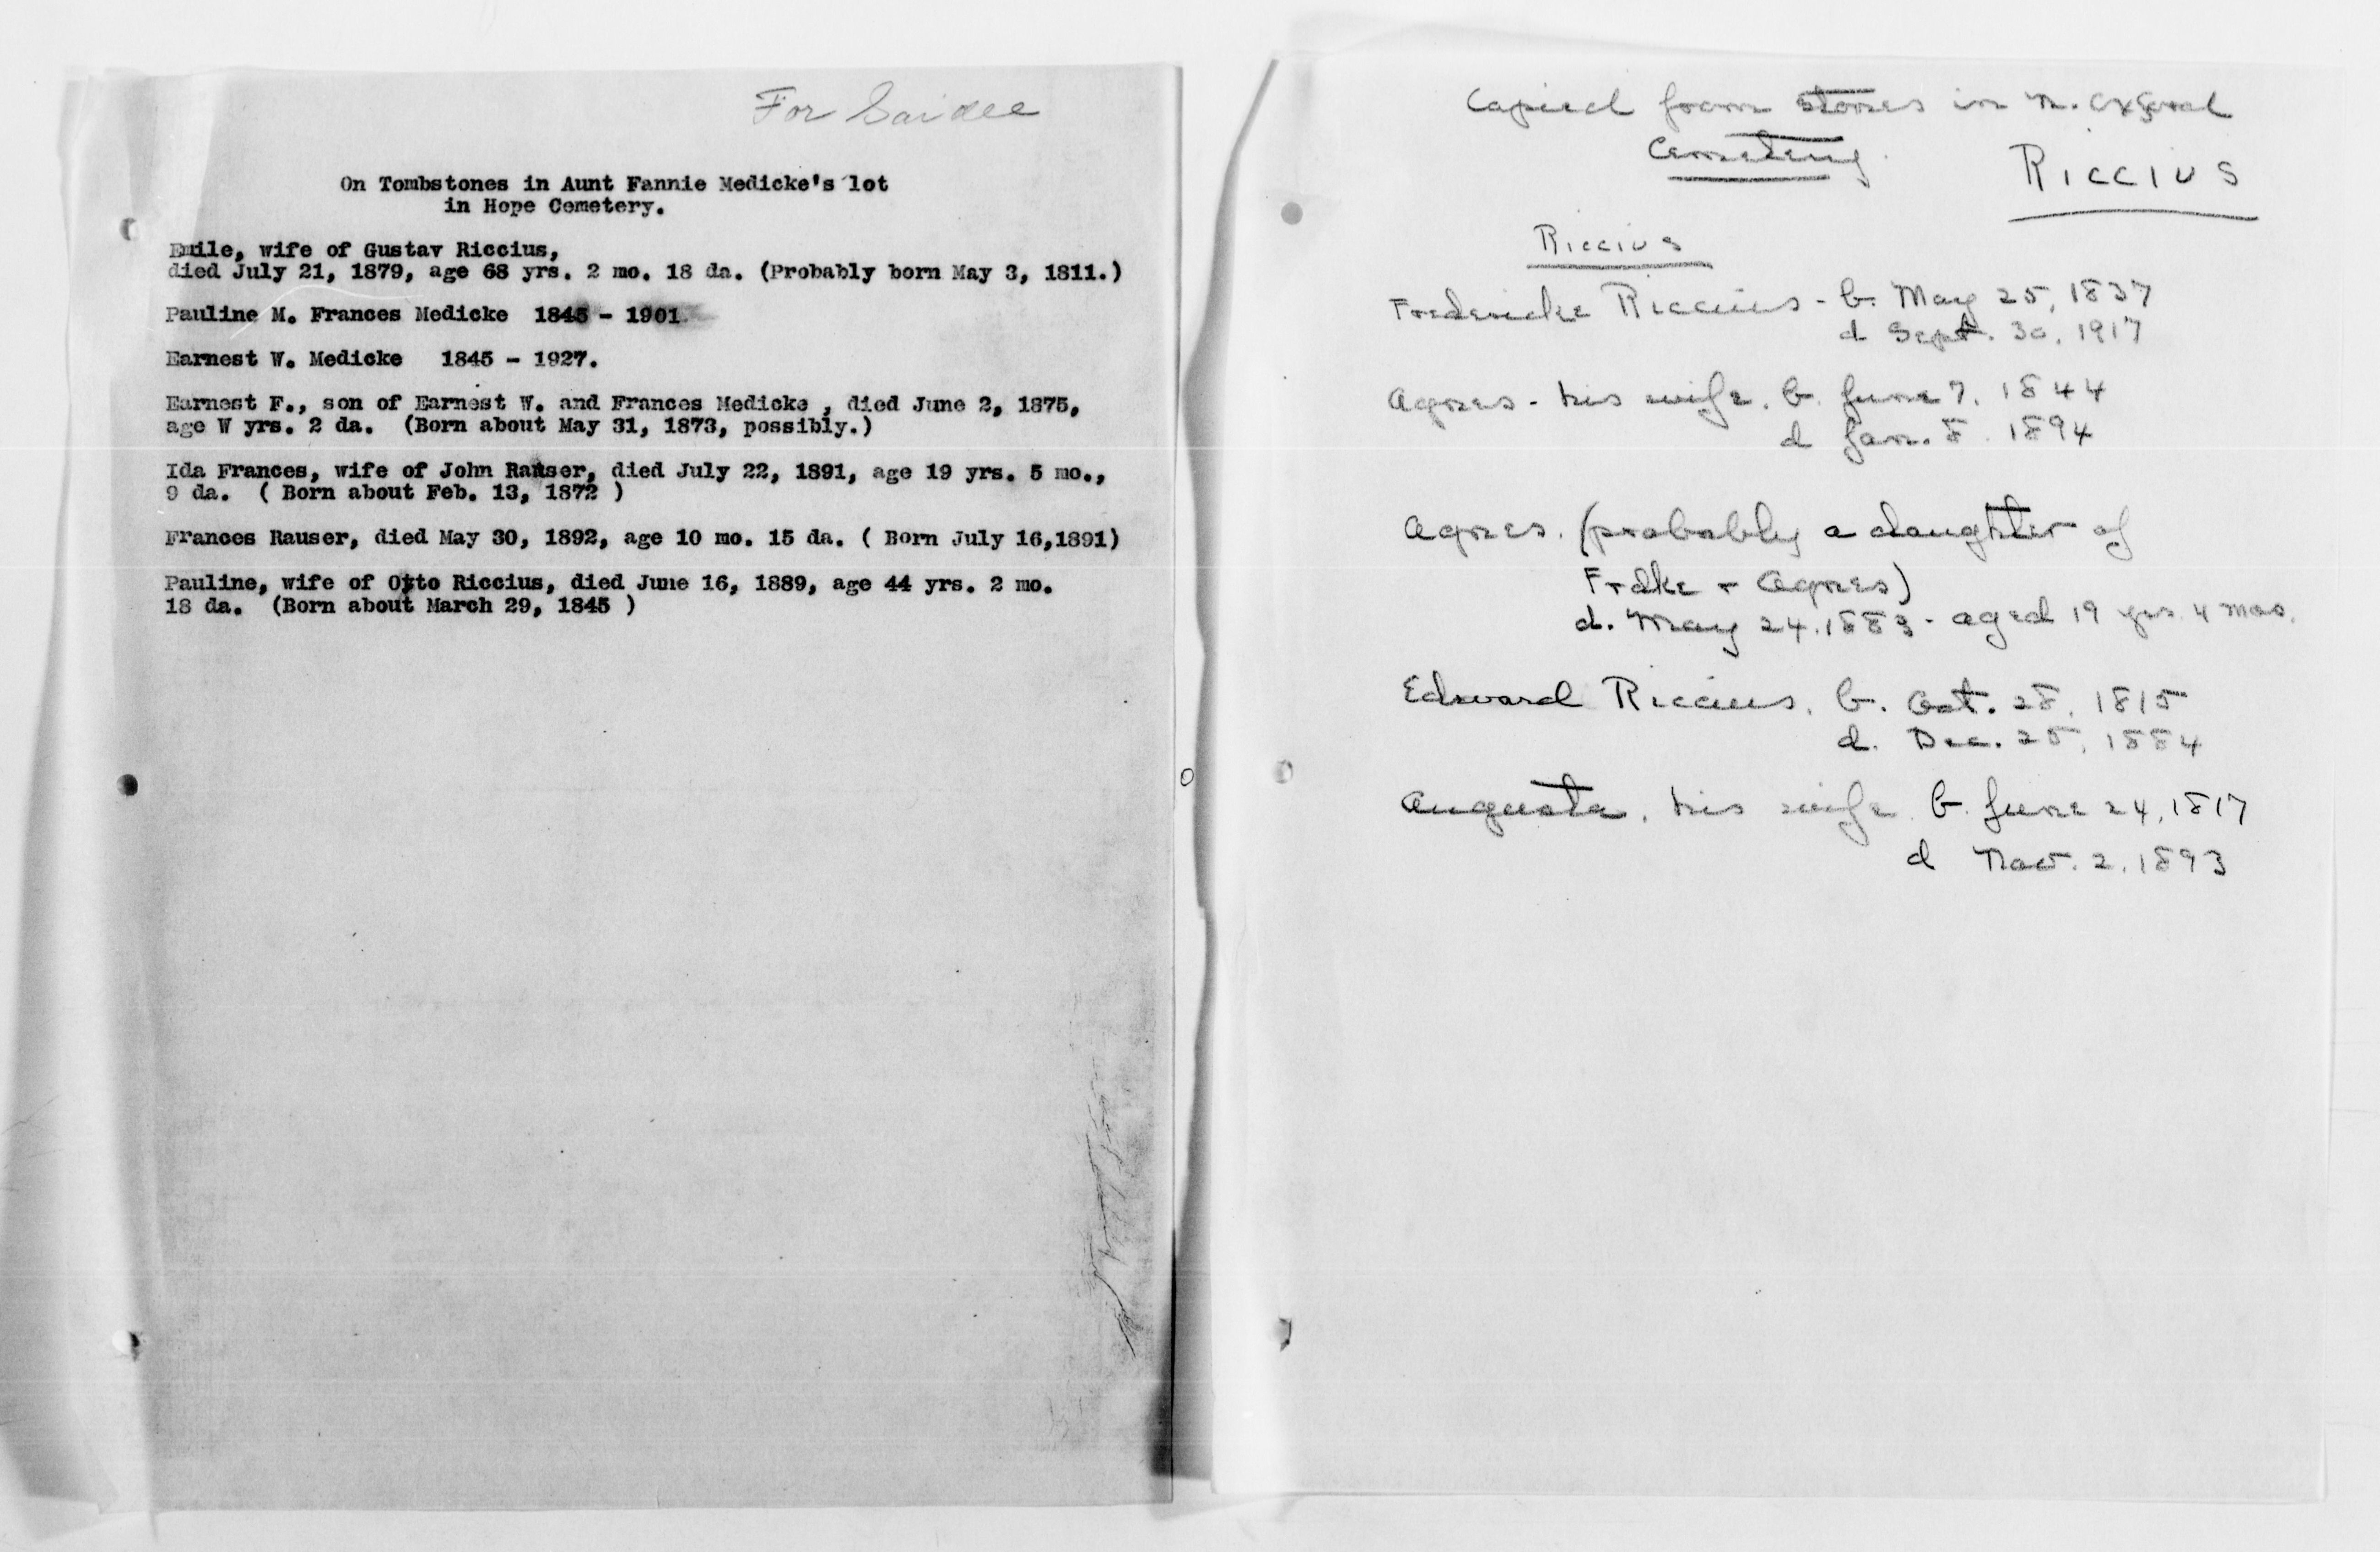 For Saidee
On Tombstones in Aunt Fannie Medicke's lot
in Hope Cemetery.
Emile, wife of Gustav Riccius,
died July 21, 1879, age 68 yrs. 2 mo. 18 da. (Probably born May 3, 1811.)
Pauline M. Frances Medicke 1845 - 1901.
Earnest W. Medicke 1845 - 1927.
Earnest F., son of Earnest W. and Frances Medicke , died June 2, 1875,
age W yrs. 2 da. (Born about May 31, 1873, possibly.)
Ida Frances, wife of John Rauser, died July 22, 1891, age 19 yrs. 5 mo.,
9 da. ( Born about Feb. 13, 1872 )
Frances Rauser, died May 30, 1892, age 10 mo. 15 da. ( Born July 16,1891)
Pauline, wife of Otto Riccius, died June 16, 1889, age 44 yrs. 2 mo.
18 da. (Born about March 29, 1845 )
Copied from stones in N. Oxford
Cemetery.
RICCIUS
Riccius
Fredericke Riccius - b. May 25, 1837
d Sept. 30, 1917
Agnes - his wife. b. June 7, 1844
d Jan. 8. 1894
Agnes. (probably a daughter of
Frdke + Agnes)
d. May 24. 1883 - aged 19 yrs 4 mos.
Edward Riccius. b. Oct. 28, 1815
d. Dec. 25, 1884
Augusta, his wife b. June 24, 1817
d Nov. 2, 1893